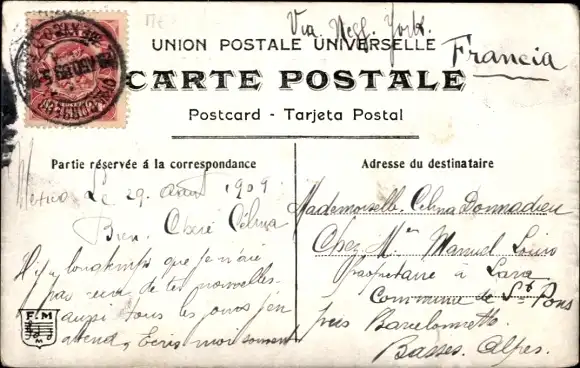 Via New. York.
Francia
UNION POSTALE UNIVERSELLE
CARTE POSTALE
Postcard - Tarjeta Postal
Partie réservée á la correspondance
Mexico Le 29 aout 1909
Bien Cheré Célina
Il y a longtemps que je n'ai
pas reçu de tes nouvelles
aussi tous les jours j'en
attend, Ecris moi souvent
F.M
M
Adresse du destinataire
Mademoiselle Celina Donnadieu
Chez Mr Manuel
propriétaire à Lara
Commune de St Pons
près Barcelonnette
Basses. Alpes.